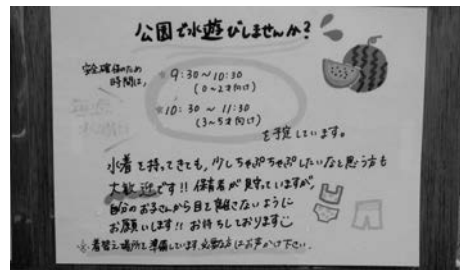 公園で水遊びしませんか?
安全確保のため
時間は、
★9:30～10:30
(0～2才向け)
★10:30～11:30
(3～5才向け)
を予定しています。
水着を持ってきても、少しちゃぷちゃぷしたいなと思う方も
大歓迎です!! 保育者が見守っていますが、
自分のお子さんから目を離さないように
お願いします!! お待ちしております
※着替え場所を準備しています。必要な方はお声かけ下さい。